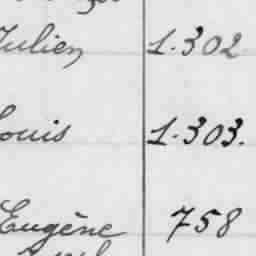 Julien 1.302
Louis 1.303.
Eugène 758